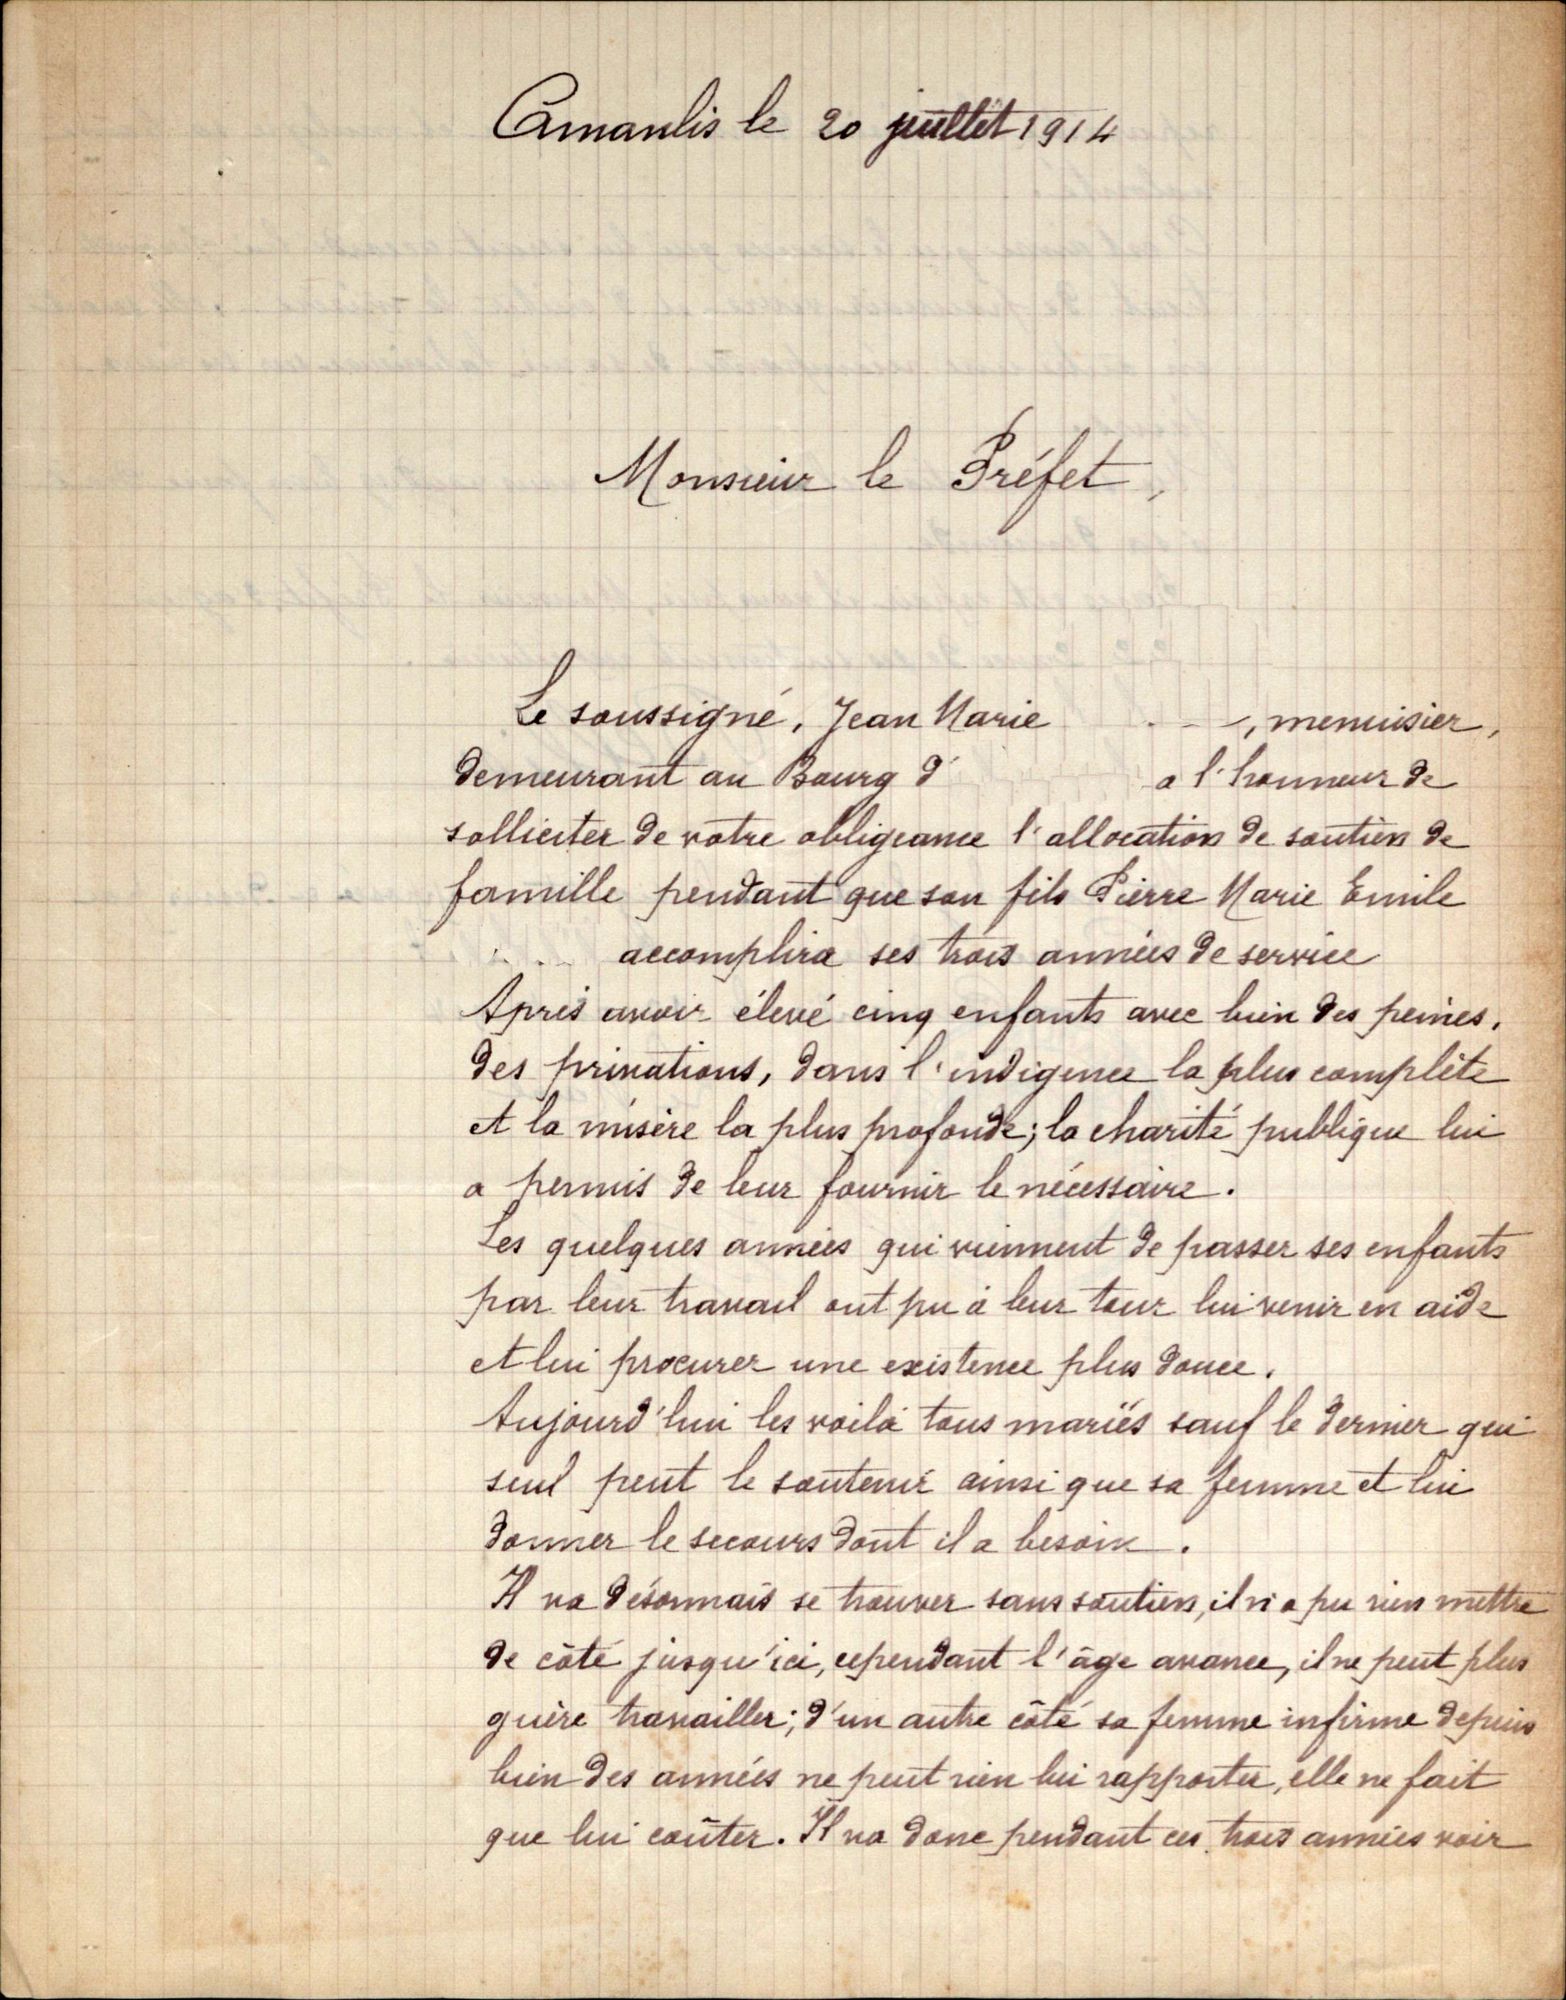 Amanlis le 20 juillet 1914
Monsieur le Préfet,
Le soussigné, Jean Marie , menuisier,
demeurant au Bourg d' a l'honneur de
solliciter de votre obligeance l'allocation de soutien de
famille pendant que son fils Pierre Marie Emile
accomplira ses trois années de service
Après avoir élevé cinq enfants avec bien des peines,
des privations, dans l'indigence la plus complète
et la misère la plus profonde; la charité publique lui
a permis de leur fournir le nécessaire.
Les quelques années qui viennent de passer ses enfants
par leur travail ont pu à leur tour lui venir en aide
et lui procurer une existence plus douce.
Aujourd'hui les voilà tous mariés sauf le dernier qui
seul peut le soutenir ainsi que sa femme et lui
donner le secours dont il a besoin.
Il va désormais se trouver sans soutien, il n'a pu rien mettre
de côté jusqu'ici, cependant l'âge avance, il ne peut plus
guère travailler; d'un autre côté sa femme infirme depuis
bien des années ne peut rien lui rapporter, elle ne fait
que lui coûter. Il va donc pendant ces trois années voir